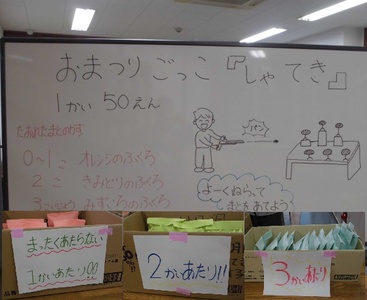 おまつりごっこ『しゃてき』
1かい 50えん
たおれたまとのかず
0～1こ オレンジのふくろ
2こ きみどりのふくろ
3こいじょう みずいろのふくろ
パン
よーくねらって
しまとをあてよう
まったくあたらない
1かいあたり!!
2かいあたり!!
3かいあたり